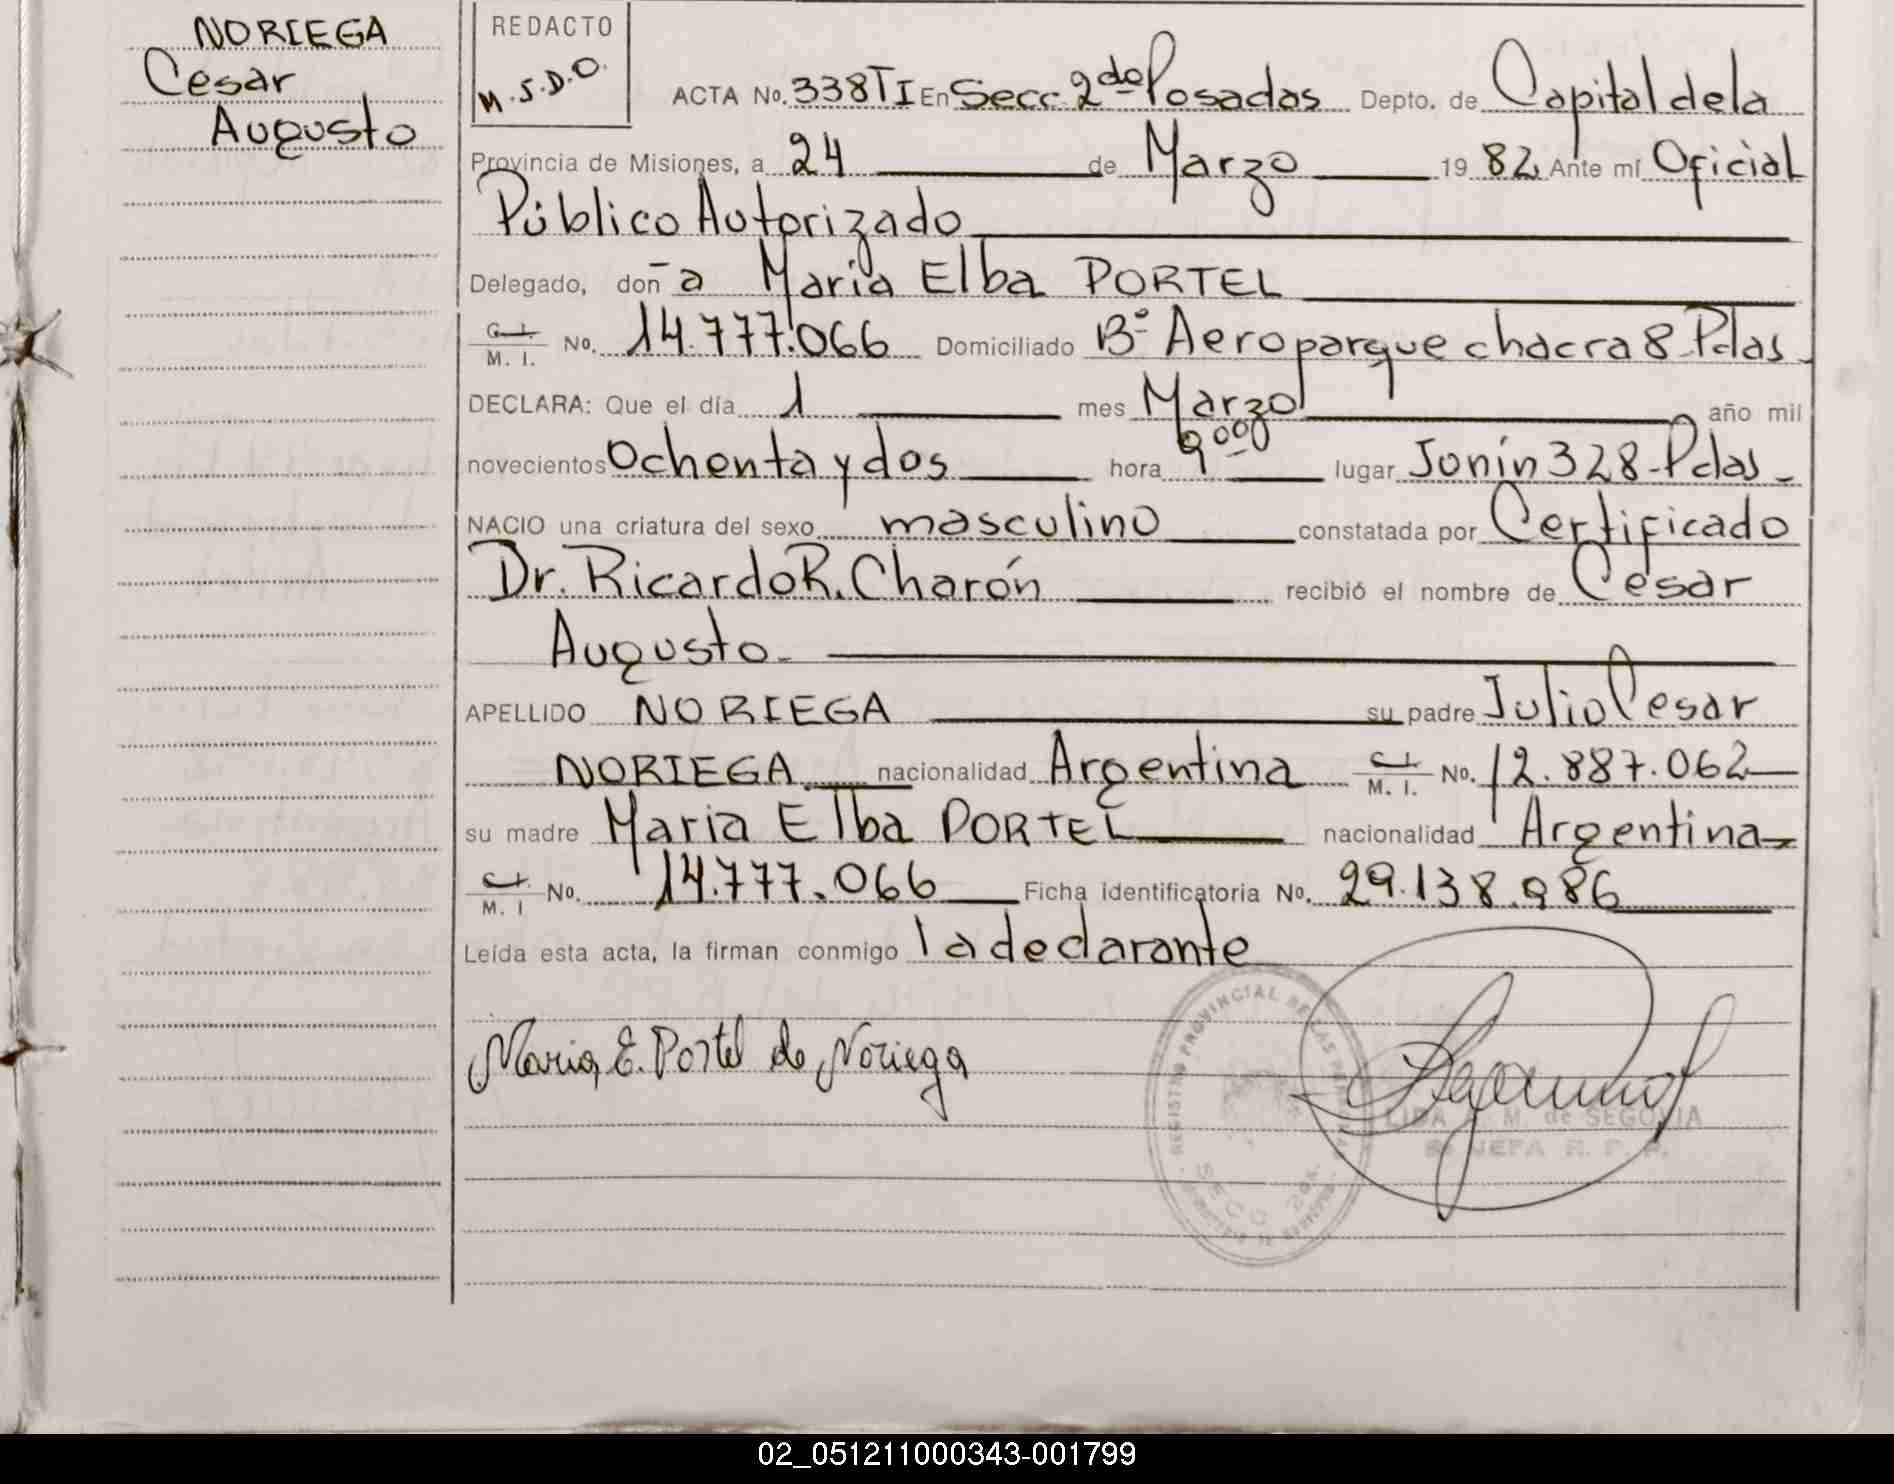 NORIEGA
Cesar
Augusto
REDACTO
M.S.D.O.
ACTA No. 338 TI En Secc 2da Posadas Depto. de Capital de la
Provincia de Misiones, a 24 de Marzo 1982 Ante mí Oficial
Público Autorizado
Delegado, don-a Maria Elba PORTEL
C. I. / M. I. No. 14.777.066 Domiciliado Bº Aeroparque chacra 8-Pdas-
DECLARA: Que el día 1 mes Marzo año mil
novecientos Ochenta y dos hora 9 00 lugar Junín 328-Pdas-
NACIO una criatura del sexo masculino constatada por Certificado
Dr. Ricardo R. Charón recibió el nombre de Cesar
Augusto-
APELLIDO NORIEGA su padre Julio Cesar
NORIEGA nacionalidad Argentina C. I. / M. I. No. 12.887.062
su madre Maria Elba PORTEL nacionalidad Argentina-
C. I. / M. I No. 14.777.066 Ficha identificatoria No. 29.138.986
Leída esta acta, la firman conmigo la declarante
Maria E. Portel de Noriega
REGISTRO PROVINCIAL DE LAS PERSONAS
SECC 2da.
de SEGOVIA
JEFA R. P. P.
02_051211000343-001799